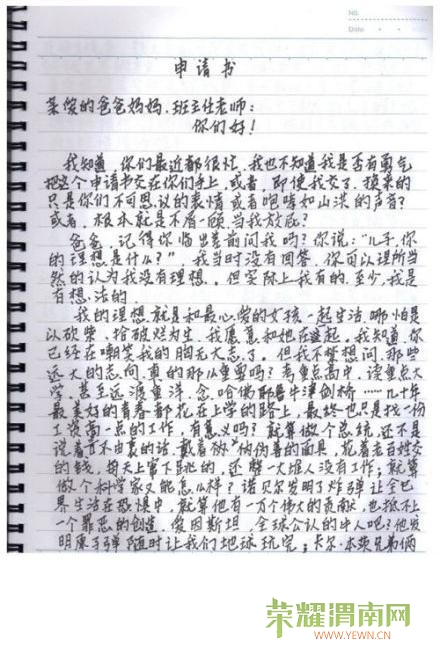 No.
Date
申请书
亲爱的爸爸妈妈、班主任老师：
你们好！
我知道，你们最近都很忙，我也不知道我是否有勇气
把这个申请书交在你们手上，或者，即使我交了，换来的
只是你们不可思议的表情或者咆哮如山洪的声音？
或者，根本就是不屑一顾，当我放屁？
爸爸，记得你临出差前问我吗？你说：“儿子，你
的理想是什么？”我当时没有回答，你可以理所当
然的认为我没有理想。但实际上我有的，至少，我是
有想法的。
我的理想就是和最心爱的女孩一起生活，哪怕是
以砍柴、拾破烂为生，我愿意和她在一起。我知道，你
已经在嘲笑我的胸无大志了。但我不禁想问，那些
远大的志向，真的那么重要吗？考重点高中，读重点大
学，甚至远渡重洋，念哈佛耶鲁牛津剑桥……几十年
最美好的青春都花在上学的路上，最终也只是找一份
工资高一点的工作，有意义吗？就算做个总统，还不是
说着言不由衷的话，戴着伪善的面具，花着老百姓交
的钱，每天上窜下跳的，还整一大堆人没有工作；就算
做个科学家又能怎么样？诺贝尔发明了炸弹让全世
界生活在恐惧中，就算他有一万个伟大的贡献，也抵不上
一个罪恶的创造。爱因斯坦，全球公认的牛人吧？他发
明原子弹随时让我们地球玩完；卡尔·本茨兄弟俩
荣耀渭南网
WWW.YEWN.CN